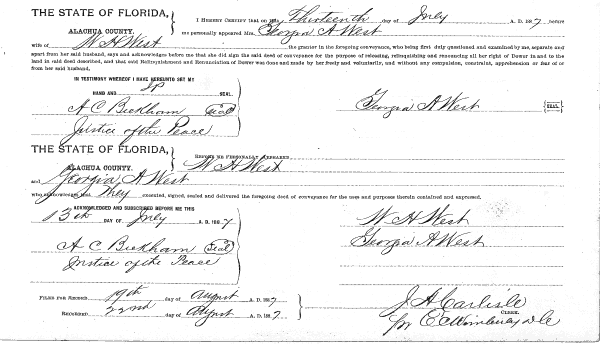 THE STATE OF FLORIDA,
ALACHUA COUNTY.
I HEREBY CERTIFY that on this Thirteenth day of July A. D. 1887, before
me personally appeared Mrs. Georgia A West
wife of W. H. West the grantor in the foregoing conveyance, who being first duly questioned and examined by me, separate and
apart from her said husband, says and acknowledges before me that she did sign the said deed of conveyance for the purpose of releasing, relinquishing and renouncing all her right of Dower in and to the
land in said deed described, and that said Relinquishment and Renunciation of Dower was done and made by her freely and voluntarily, and without any compulsion, constraint, apprehension or fear of or
from her said husband,
IN TESTIMONY WHEREOF I HAVE HEREUNTO SET MY
HAND AND SEAL.
A C Beckham Seal
Justice of the Peace
Georgia A West SEAL.
THE STATE OF FLORIDA,
ALACHUA COUNTY.
BEFORE ME PERSONALLY APPEARED W H West
and Georgia A. West
who acknowledges that They executed, signed, sealed and delivered the foregoing deed of conveyance for the uses and purposes therein contained and expressed.
ACKNOWLEDGED AND SUBSCRIBED BEFORE ME THIS
13th DAY OF July A. D. 1887
W. H West
A C Beckham Seal
Georgia A West
Justice of the Peace
FILED FOR RECORD 19th day of August A. D. 1887
RECORDED 22nd day of August A. D. 1887
J. A. Carlisle
CLERK.
for E C Wimberley D C